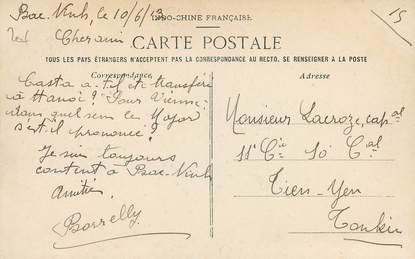 Bac-Ninh, le 10/6/13
INDO-CHINE FRANÇAISE
15
Cher ami
CARTE POSTALE
TOUS LES PAYS ÉTRANGERS N'ACCEPTENT PAS LA CORRESPONDANCE AU RECTO. SE RENSEIGNER A LA POSTE
Correspondance
Casta a-t-il été transféré
à Hanoï? Pour
quel sens le Major
s'est il prononcé?
Je suis toujours
content à Bac-Ninh
Amitiés
Borrelly
Adresse
Monsieur Lacroze, cap.al
11e Cie 10e Cal
Tien-Yen
Tonkin